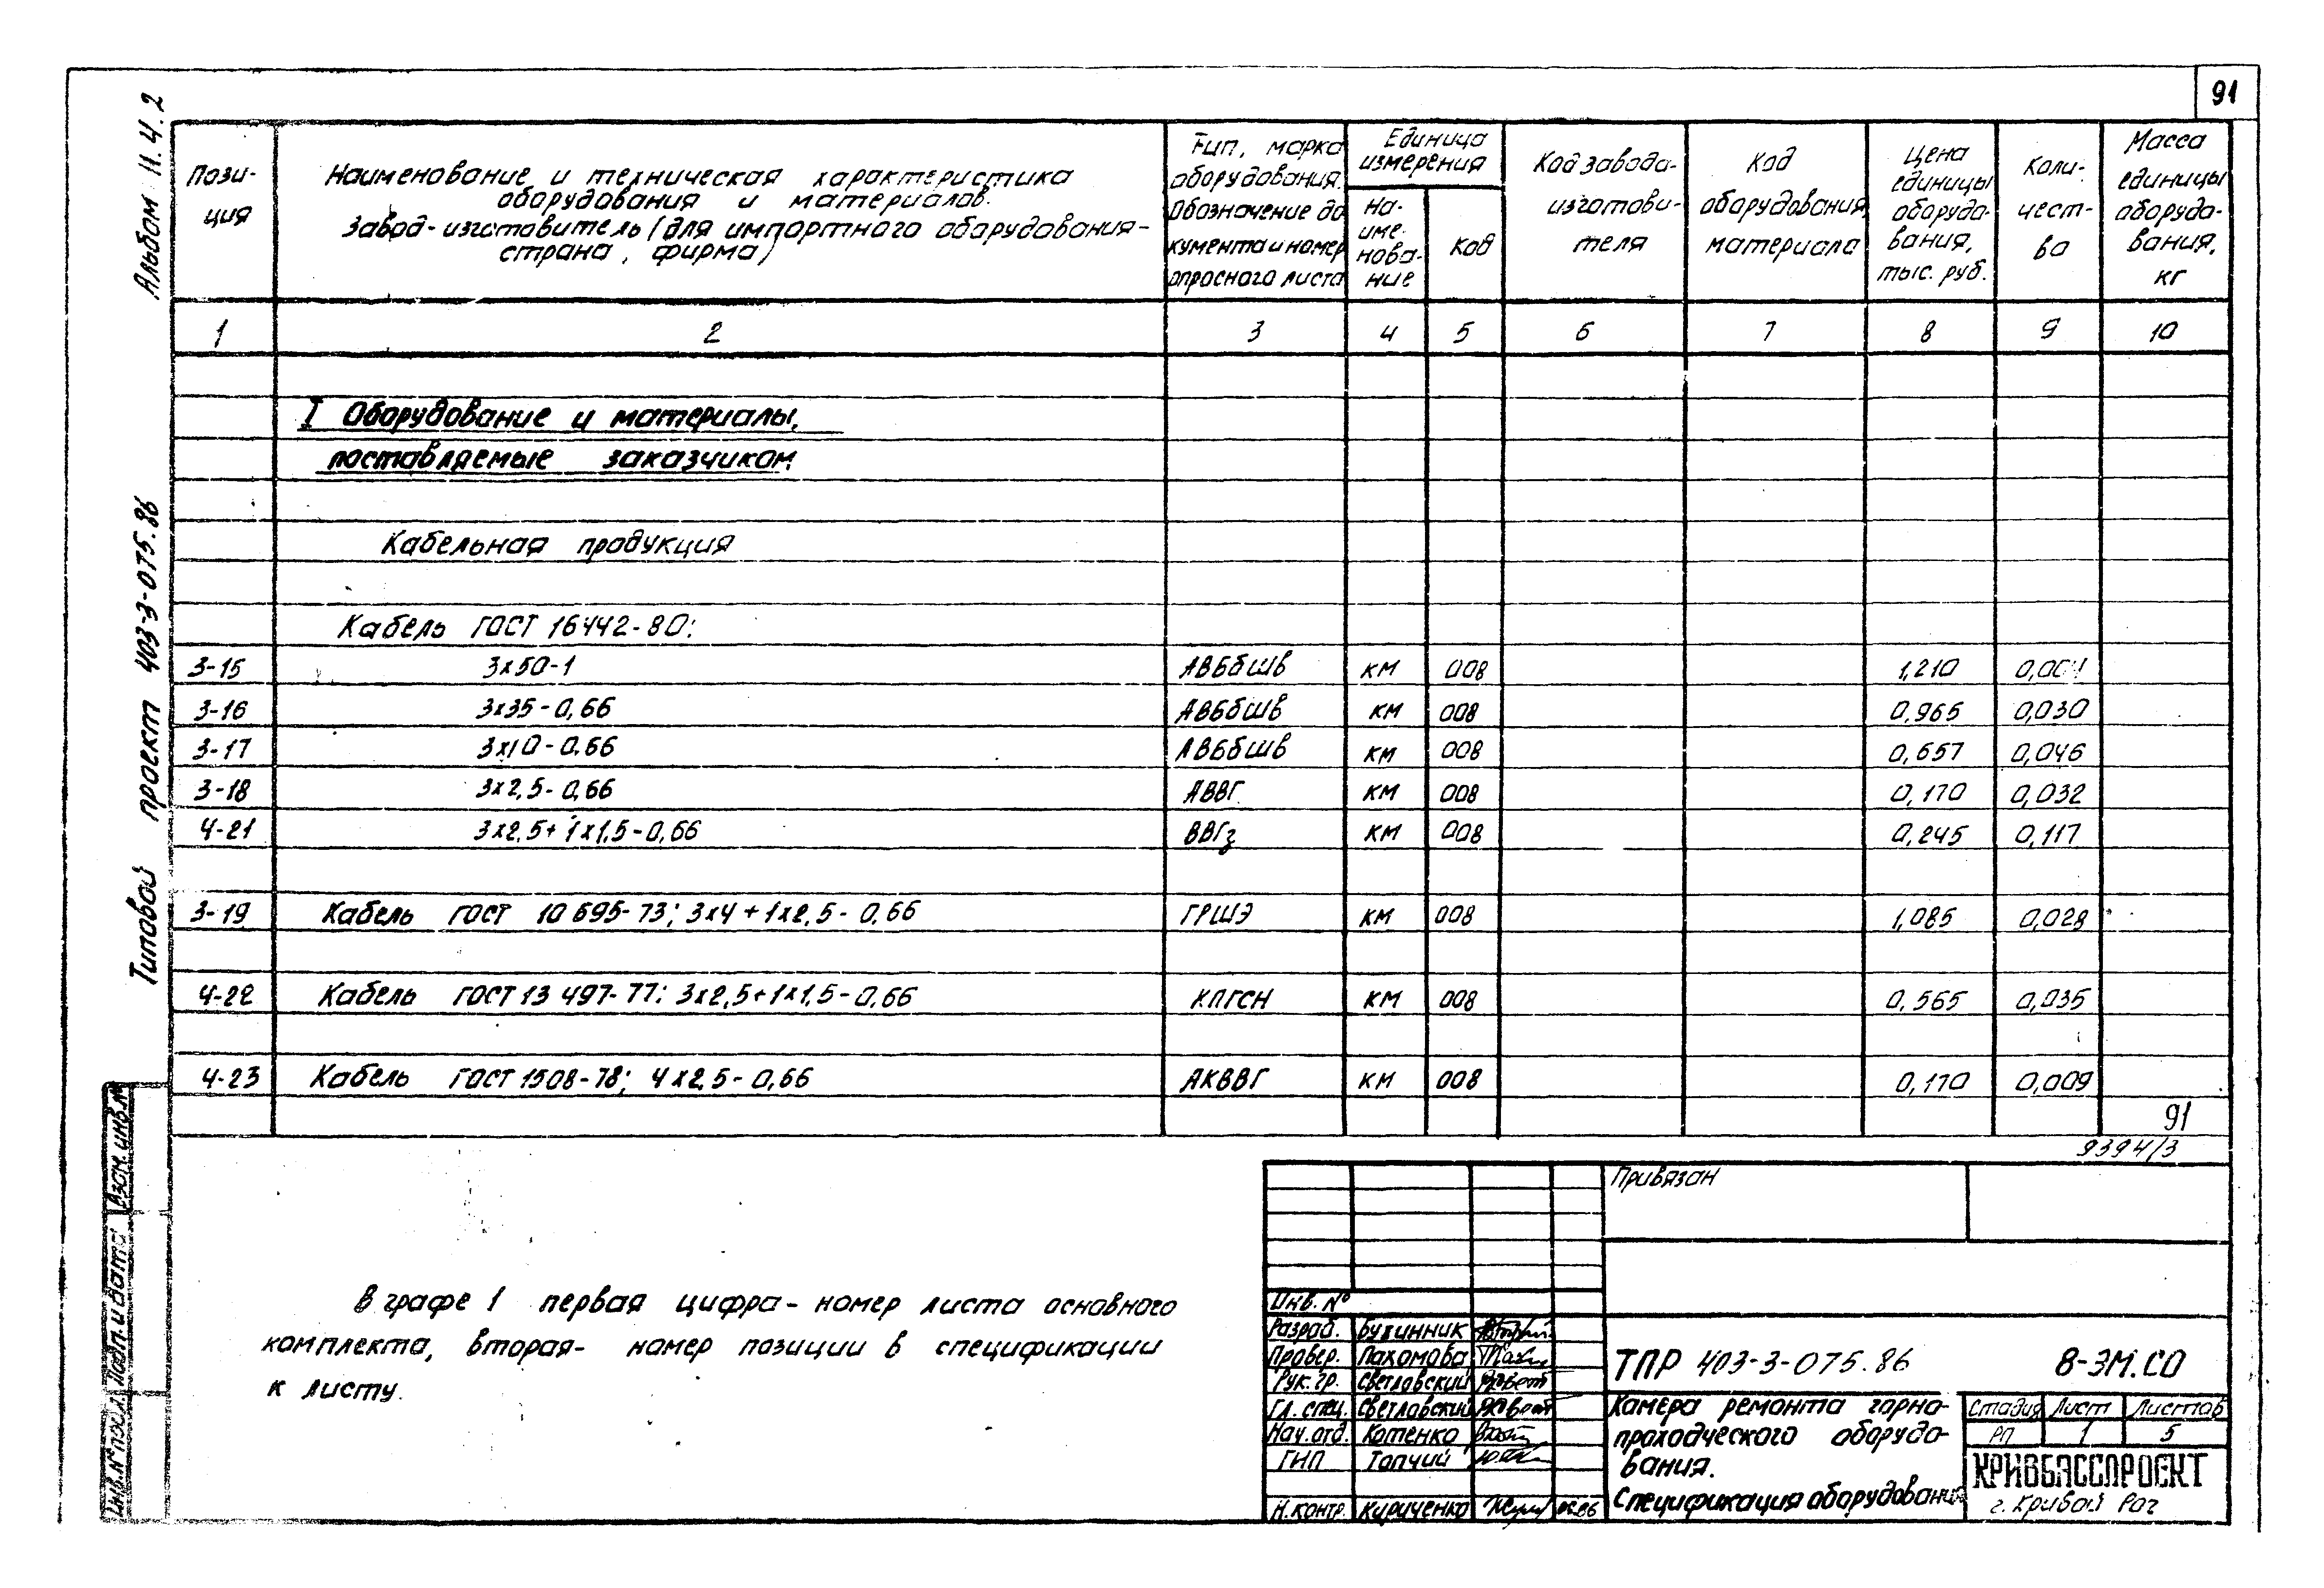 91
Альбом 11.4.2
Типовой проект 403-3-075.86
Пози-
ция
Наименование и техническая характеристика
оборудования и материалов.
Завод-изготовитель (для импортного оборудования-
страна, фирма)
Тип, марка
оборудования.
Обозначение до
кумента и номер
опросного листа
Единица
измерения
На-
име-
нова-
ние
Код
Код завода-
изготови-
теля
Код
оборудования,
материала
Цена
единицы
оборудо-
вания,
тыс. руб.
Коли-
чест-
во
Масса
единицы
оборудо-
вания,
кг
1 2 3 4 5 6 7 8 9 10
I Оборудование и материалы,
поставляемые заказчиком
Кабельная продукция
Кабель ГОСТ 16442-80:
3-15 3х50-1 АВБбШв км 008 1,210
3-16 3х35-0,66 АВБбШв км 008 0,965 0,030
3-17 3х10-0,66 АВБбШв км 008 0,657 0,046
3-18 3х2,5-0,66 АВВГ км 008 0,170 0,032
4-21 3х2,5+1х1,5-0,66 ВВГз км 008 0,245 0,117
3-19 Кабель ГОСТ 10695-73; 3х4+1х2,5-0,66 ГРШЭ км 008 1,085 0,028
4-22 Кабель ГОСТ 13497-77: 3х2,5+1х1,5-0,66 КПГСН км 008 0,565 0,035
4-23 Кабель ГОСТ 1508-78; 4х2,5-0,66 АКВВГ км 008 0,170 0,009
91
9394/3
В графе 1 первая цифра- номер листа основного
комплекта, вторая- номер позиции в спецификации
к листу.
Взам. инв. №
Подп. и дата
Инв. № подл.
Привязан
Инв. №
Разраб. Бухинник
Провер. Пахомова
Рук. гр. Светловский
Гл. спец. Светловский
Нач. отд. Котенко
ГИП Топчий
Н. контр. Кириченко
ТПР 403-3-075.86 8-ЭМ.СО
Камера ремонта горно-
проходческого оборудо-
вания.
Спецификация оборудования
Стадия Лист Листов
РП 1 5
КРИВБАССПРОЕКТ
г. Кривой Рог